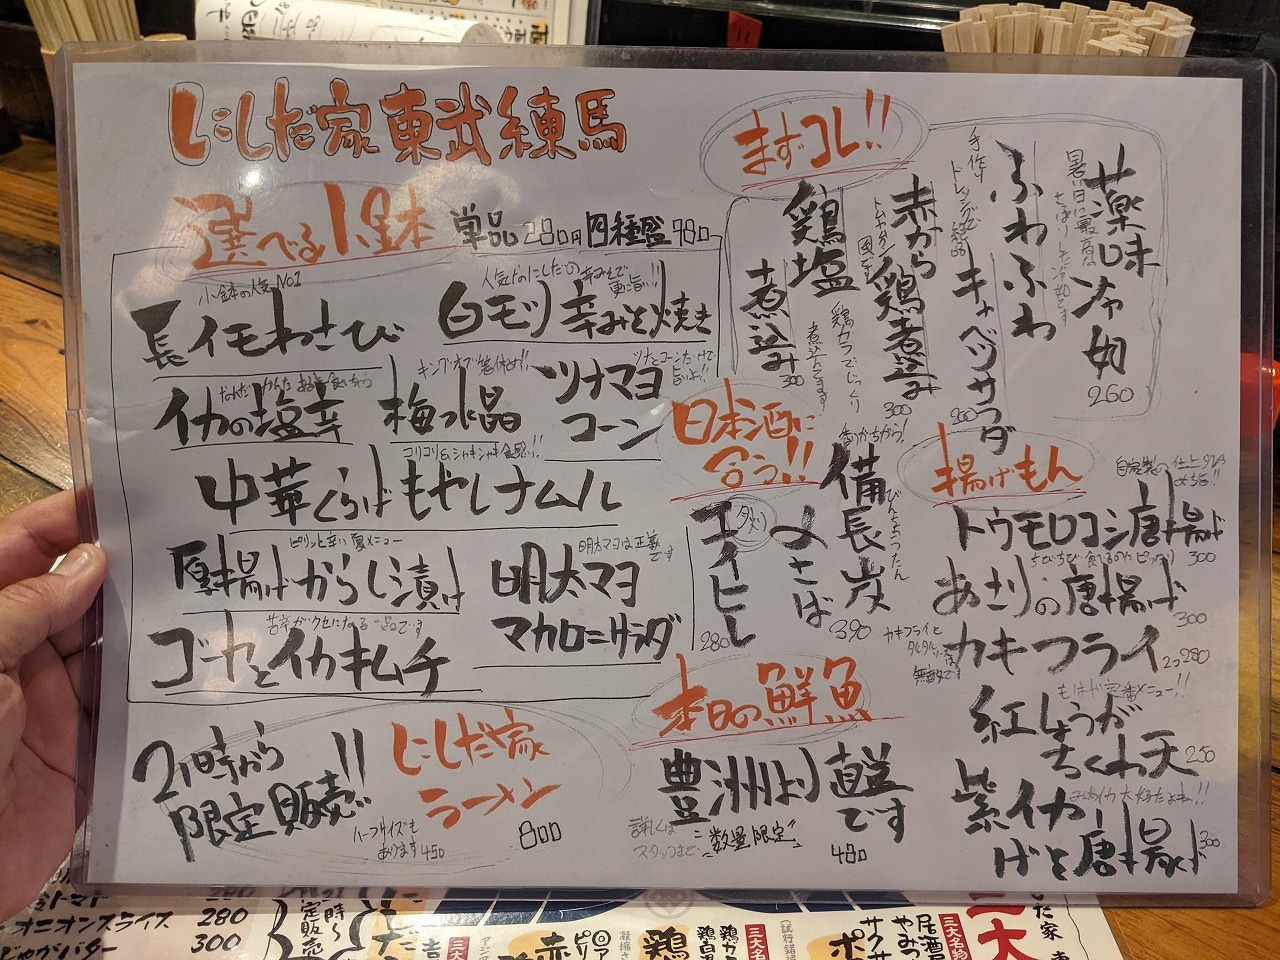 にしだ家 東武練馬
選べる小鉢 単品280円 四種盛780
小鉢の人気No1
長イモわさび
白モツ辛みそ焼き
イカの塩辛
キングオブ箸休め!!
梅水晶
ツナとコーンだけで旨いよ!!
ツナマヨコーン
コリコリ&シャキシャキ食感!!
中華くらげもやしナムル
ピリッと辛い夏メニュー
厚揚げからし漬け
明太マヨは正義です
明太マヨマカロニサラダ
苦辛がクセになる一品です
ゴーヤとイカキムチ
21時から限定販売!!
にしだ家ラーメン
800
ハーフサイズもあります450
まずコレ!!
薬味冷奴
260
暑い日に最高な
さっぱりした冷奴です
ふわふわキャベツサラダ
200
手作りドレッシングが絶品
赤から鶏煮込み
300
鶏塩煮込み
300
鶏ガラでじっくり煮込んでます
日本酒に合う!!
香りがちがう!
備長炭
びんちょうたん
〆さば
390
炙
エイヒレ
280
揚げもん
自家製の仕上タレ
トウモロコシ唐揚げ
300
ちびちび食べるのにピッタリ
あさりの唐揚げ
300
カキフライ
2コ280
カキフライとタルタルソースは無敵です
もはや定番メニュー!!
紅しょうがちくわ天
250
みんなイカ大好きだよね!!
紫イカげそ唐揚げ
300
本日の鮮魚
豊洲より直送です
480
詳しくはスタッフまで
"数量限定"
トマト
280
オニオンスライス 280
じゃがバター 300
三大名物